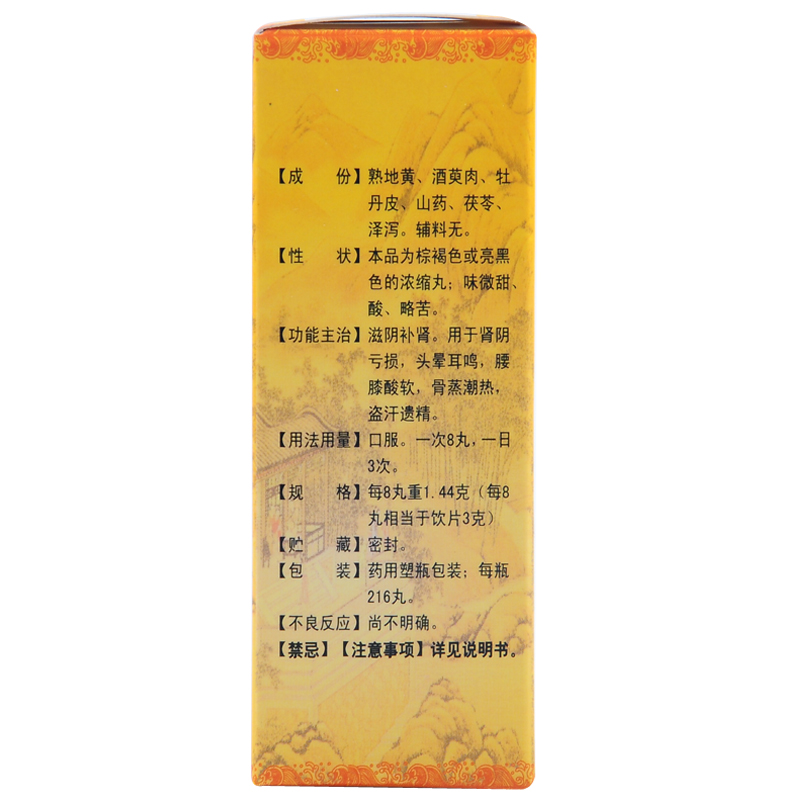 【成　份】熟地黄、酒萸肉、牡
丹皮、山药、茯苓、
泽泻。辅料无。
【性　状】本品为棕褐色或亮黑
色的浓缩丸；味微甜、
酸、略苦。
【功能主治】滋阴补肾。用于肾阴
亏损，头晕耳鸣，腰
膝酸软，骨蒸潮热，
盗汗遗精。
【用法用量】口服。一次8丸，一日
3次。
【规　格】每8丸重1.44克（每8
丸相当于饮片3克）
【贮　藏】密封。
【包　装】药用塑瓶包装；每瓶
216丸。
【不良反应】尚不明确。
【禁忌】【注意事项】详见说明书。